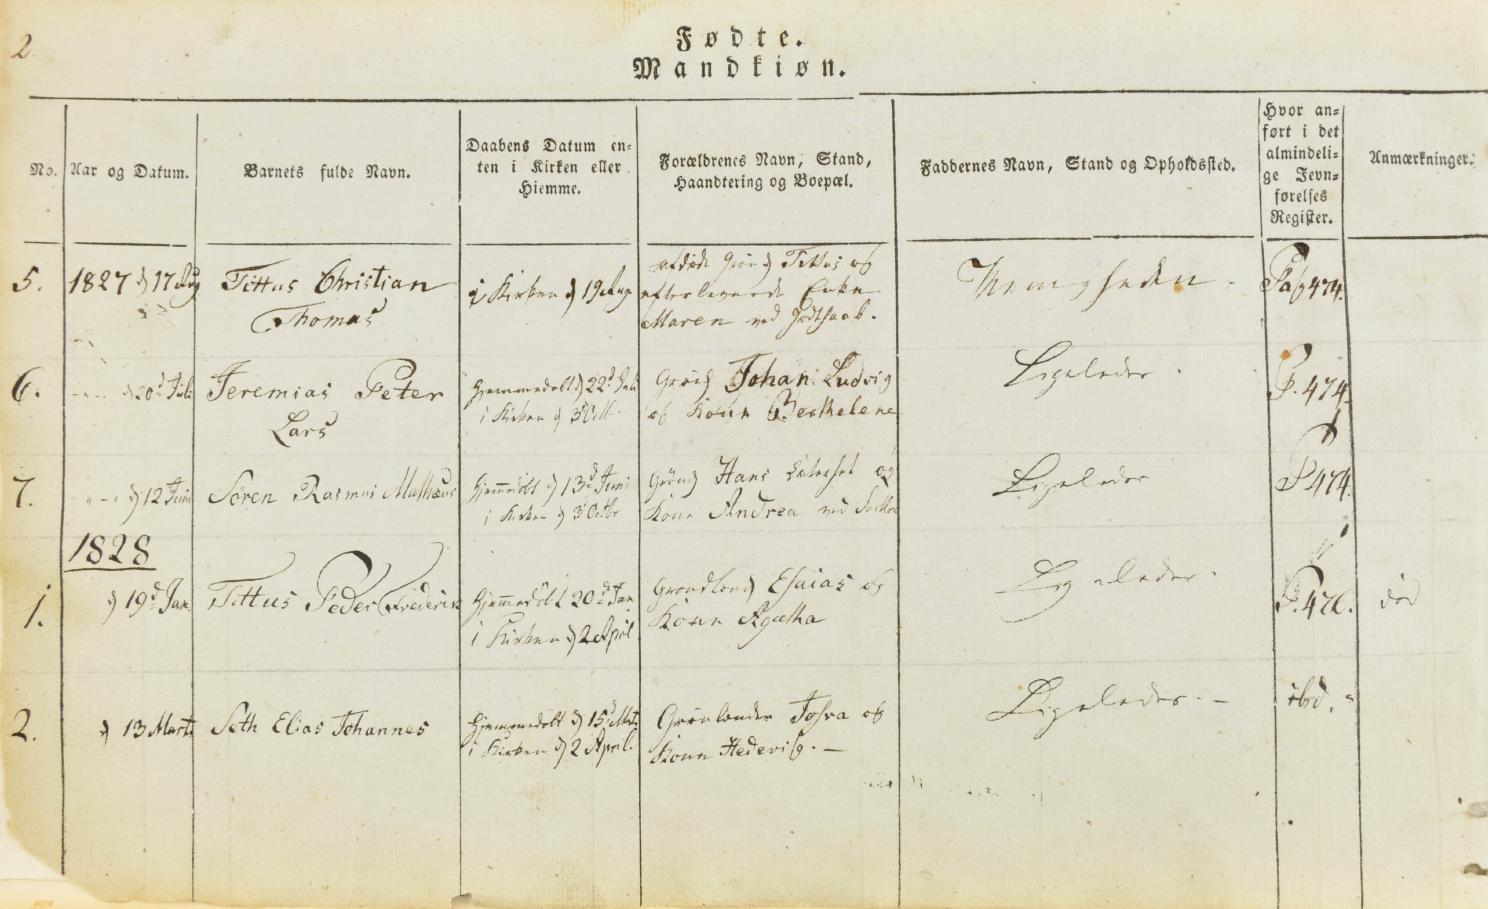 2
Fødte.
Mandkiøn.
No.
Aar og Datum.
Barnets fulde Navn.
Daabens Datum en=
ten i Kirken eller
Hiemme.
Forældrenes Navn, Stand,
Haandtering og Boepæl.
Faddernes Navn, Stand og Opholdssted.
Hvor an=
ført i det
almindeli=
ge Jevn=
førelses
Register.
Anmærkninger.
5.
1827 d 17 Aug
Tittus Christian
Thomas
i Kirken d 19 Aug
afdøde Grønl Tittus og
efterlevende Enke
Maren ved Godthaab.
Pag 474.
6.
d 20d Juli
Jeremias Peter
Lars
Hjemmedøbt d 22d Juli
i Kirken d 3 Octb
Grønl Johan Ludvig
og Kone Berthelene
Ligeledes
P. 474.
7.
d 12 Juni
Søren Rasmus Mathæus
Hjemmedøbt d 13d Juni
i Kirken d 3 Octbr
Grønl Hans og
Kone Andrea ved
Ligeledes
P 474.
1828
1.
d 19d Jan
Tittus Peder Frederik
Hjemmedøbt 20d Jan
i Kirken d 2 April
Grønlænd Esaias og
Kone Agatha
Ligeledes.
P. 476.
død
2.
d 13 Marts
Seth Elias Johannes
Hjemmedøbt d 15d Mts
i Kirken d 2 April.
Grønlænder Josva og
Kone Hedevig. —
Ligeledes. —
ibid.